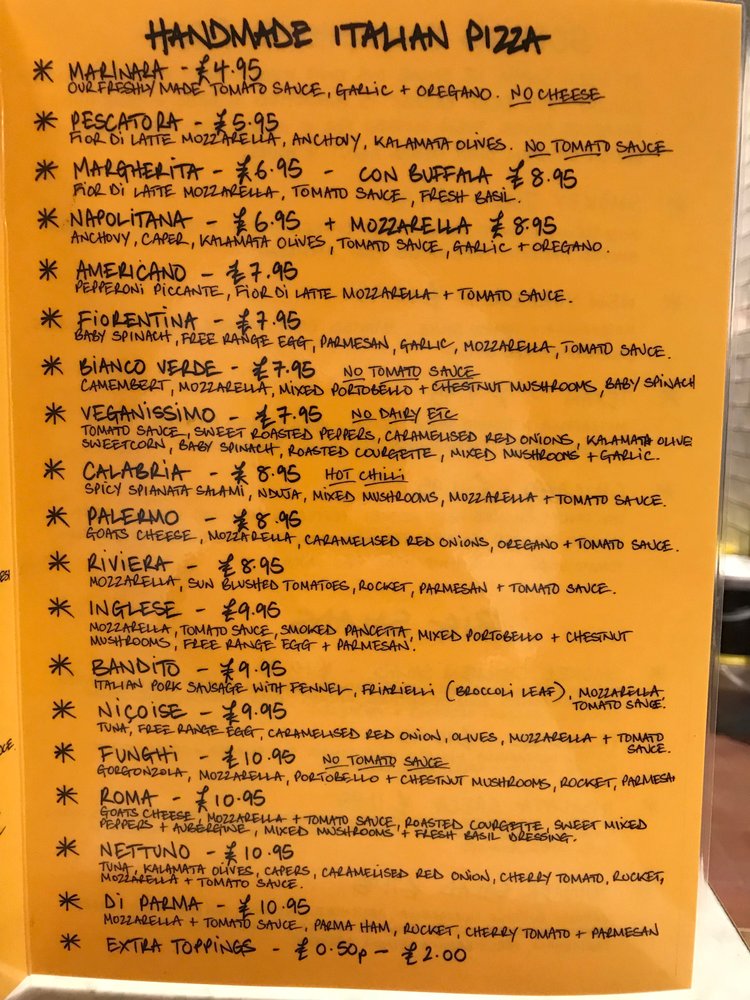 HANDMADE ITALIAN PIZZA
* MARINARA - £4.95
OUR FRESHLY MADE TOMATO SAUCE, GARLIC + OREGANO. NO CHEESE
* PESCATORA - £5.95
FIOR DI LATTE MOZZARELLA, ANCHOVY, KALAMATA OLIVES. NO TOMATO SAUCE
* MARGHERITA - £6.95 - CON BUFFALA £8.95
FIOR DI LATTE MOZZARELLA, TOMATO SAUCE, FRESH BASIL.
* NAPOLITANA - £6.95 + MOZZARELLA £8.95
ANCHOVY, CAPER, KALAMATA OLIVES, TOMATO SAUCE, GARLIC + OREGANO.
* AMERICANO - £7.95
PEPPERONI PICCANTE, FIOR DI LATTE MOZZARELLA + TOMATO SAUCE.
* FIORENTINA - £7.95
BABY SPINACH, FREE RANGE EGG, PARMESAN, GARLIC, MOZZARELLA, TOMATO SAUCE.
* BIANCO VERDE - £7.95 NO TOMATO SAUCE
CAMEMBERT, MOZZARELLA, MIXED PORTOBELLO + CHESTNUT MUSHROOMS, BABY SPINACH
* VEGANISSIMO - £7.95 NO DAIRY ETC
TOMATO SAUCE, SWEET ROASTED PEPPERS, CARAMELISED RED ONIONS, KALAMATA OLIVE
SWEETCORN, BABY SPINACH, ROASTED COURGETTE, MIXED MUSHROOMS + GARLIC.
* CALABRIA - £8.95 HOT CHILLI
SPICY SPIANATA SALAMI, NDUJA, MIXED MUSHROOMS, MOZZARELLA + TOMATO SAUCE.
* PALERMO - £8.95
GOATS CHEESE, MOZZARELLA, CARAMELISED RED ONIONS, OREGANO + TOMATO SAUCE.
* RIVIERA - £8.95
MOZZARELLA, SUN BLUSHED TOMATOES, ROCKET, PARMESAN + TOMATO SAUCE.
* INGLESE - £9.95
MOZZARELLA, TOMATO SAUCE, SMOKED PANCETTA, MIXED PORTOBELLO + CHESTNUT
MUSHROOMS, FREE RANGE EGG + PARMESAN.
* BANDITO - £9.95
ITALIAN PORK SAUSAGE WITH FENNEL, FRIARIELLI (BROCCOLI LEAF), MOZZARELLA,
TOMATO SAUCE.
* NIÇOISE - £9.95
TUNA, FREE RANGE EGG, CARAMELISED RED ONION, OLIVES, MOZZARELLA + TOMATO
SAUCE.
* FUNGHI - £10.95 NO TOMATO SAUCE
GORGONZOLA, MOZZARELLA, PORTOBELLO + CHESTNUT MUSHROOMS, ROCKET, PARMESA
* ROMA - £10.95
GOATS CHEESE, MOZZARELLA + TOMATO SAUCE, ROASTED COURGETTE, SWEET MIXED
PEPPERS + AUBERGINE, MIXED MUSHROOMS + FRESH BASIL DRESSING.
* NETTUNO - £10.95
TUNA, KALAMATA OLIVES, CAPERS, CARAMELISED RED ONION, CHERRY TOMATO, ROCKET,
MOZZARELLA + TOMATO SAUCE.
* DI PARMA - £10.95
MOZZARELLA + TOMATO SAUCE, PARMA HAM, ROCKET, CHERRY TOMATO + PARMESAN
* EXTRA TOPPINGS - £0.50p - £2.00